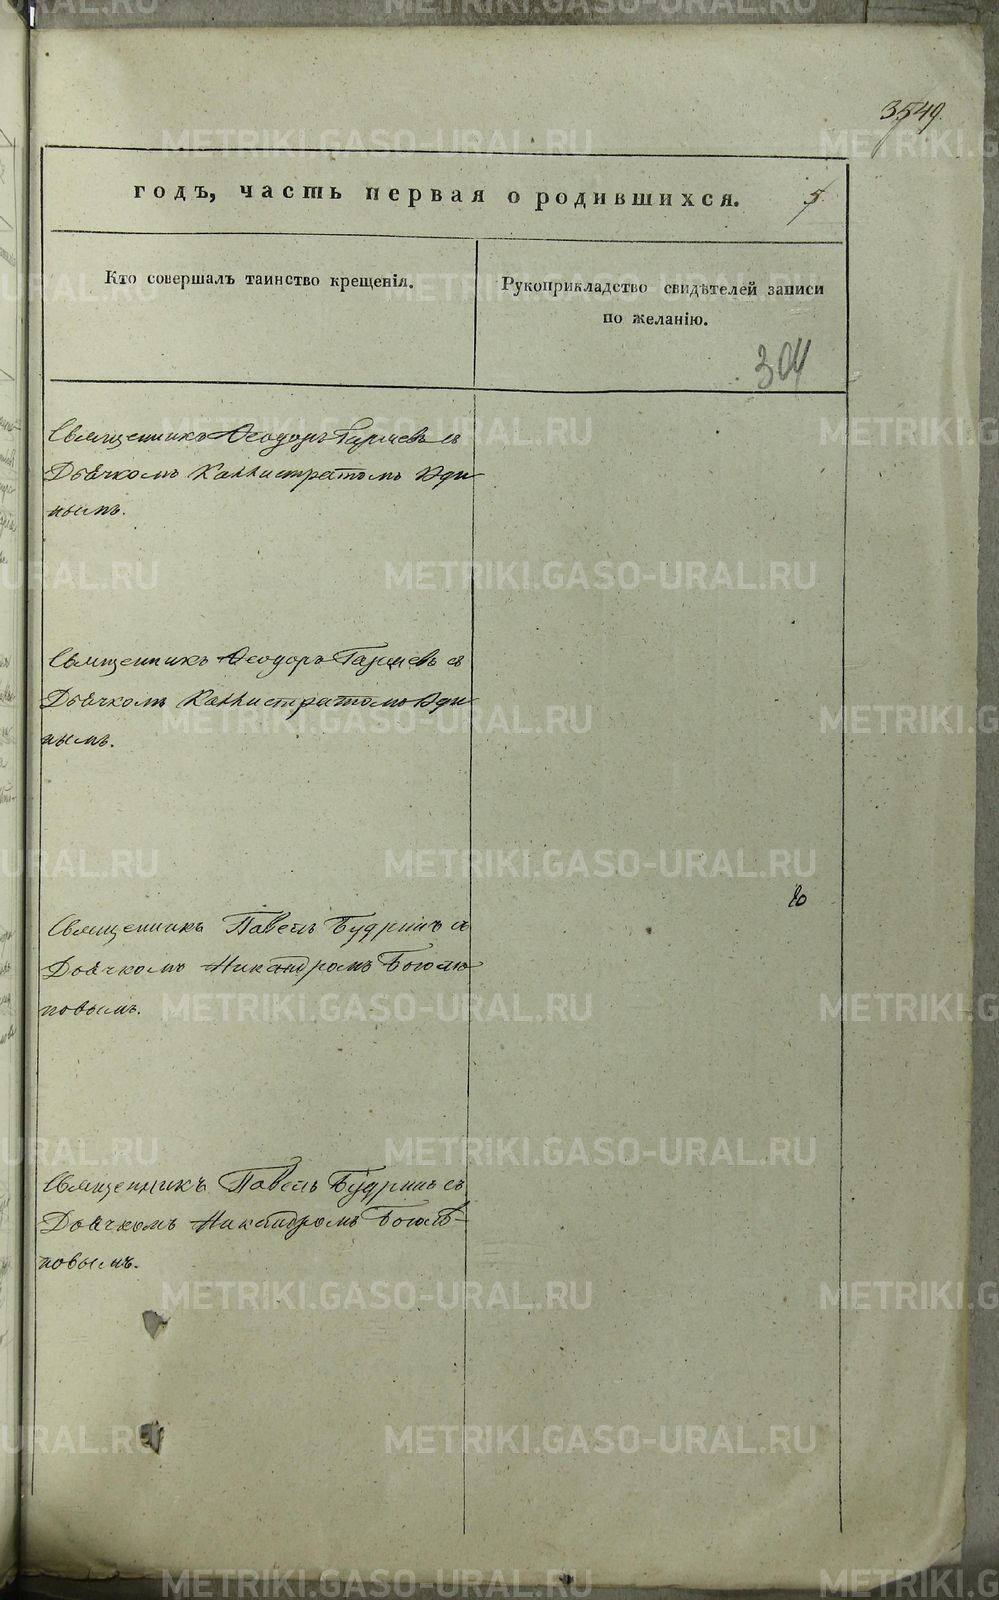 3549.
годъ, часть первая о родившихся.
5
Кто совершалъ таинство крещенія.
Рукоприкладство свидѣтелей записи
по желанію.
304
Священникъ Ѳеодоръ съ
Дьячкомъ Каллистратомъ Юди
нымъ.
Священникъ Ѳеодоръ съ
Дьячкомъ Каллистратомъ Юди
нымъ.
Священникъ Павелъ Будринъ съ
Дьячкомъ Никандромъ
повымъ.
Священникъ Павелъ Будринъ съ
Дьячкомъ Никандромъ
повымъ.
METRIKI.GASO-URAL.RU